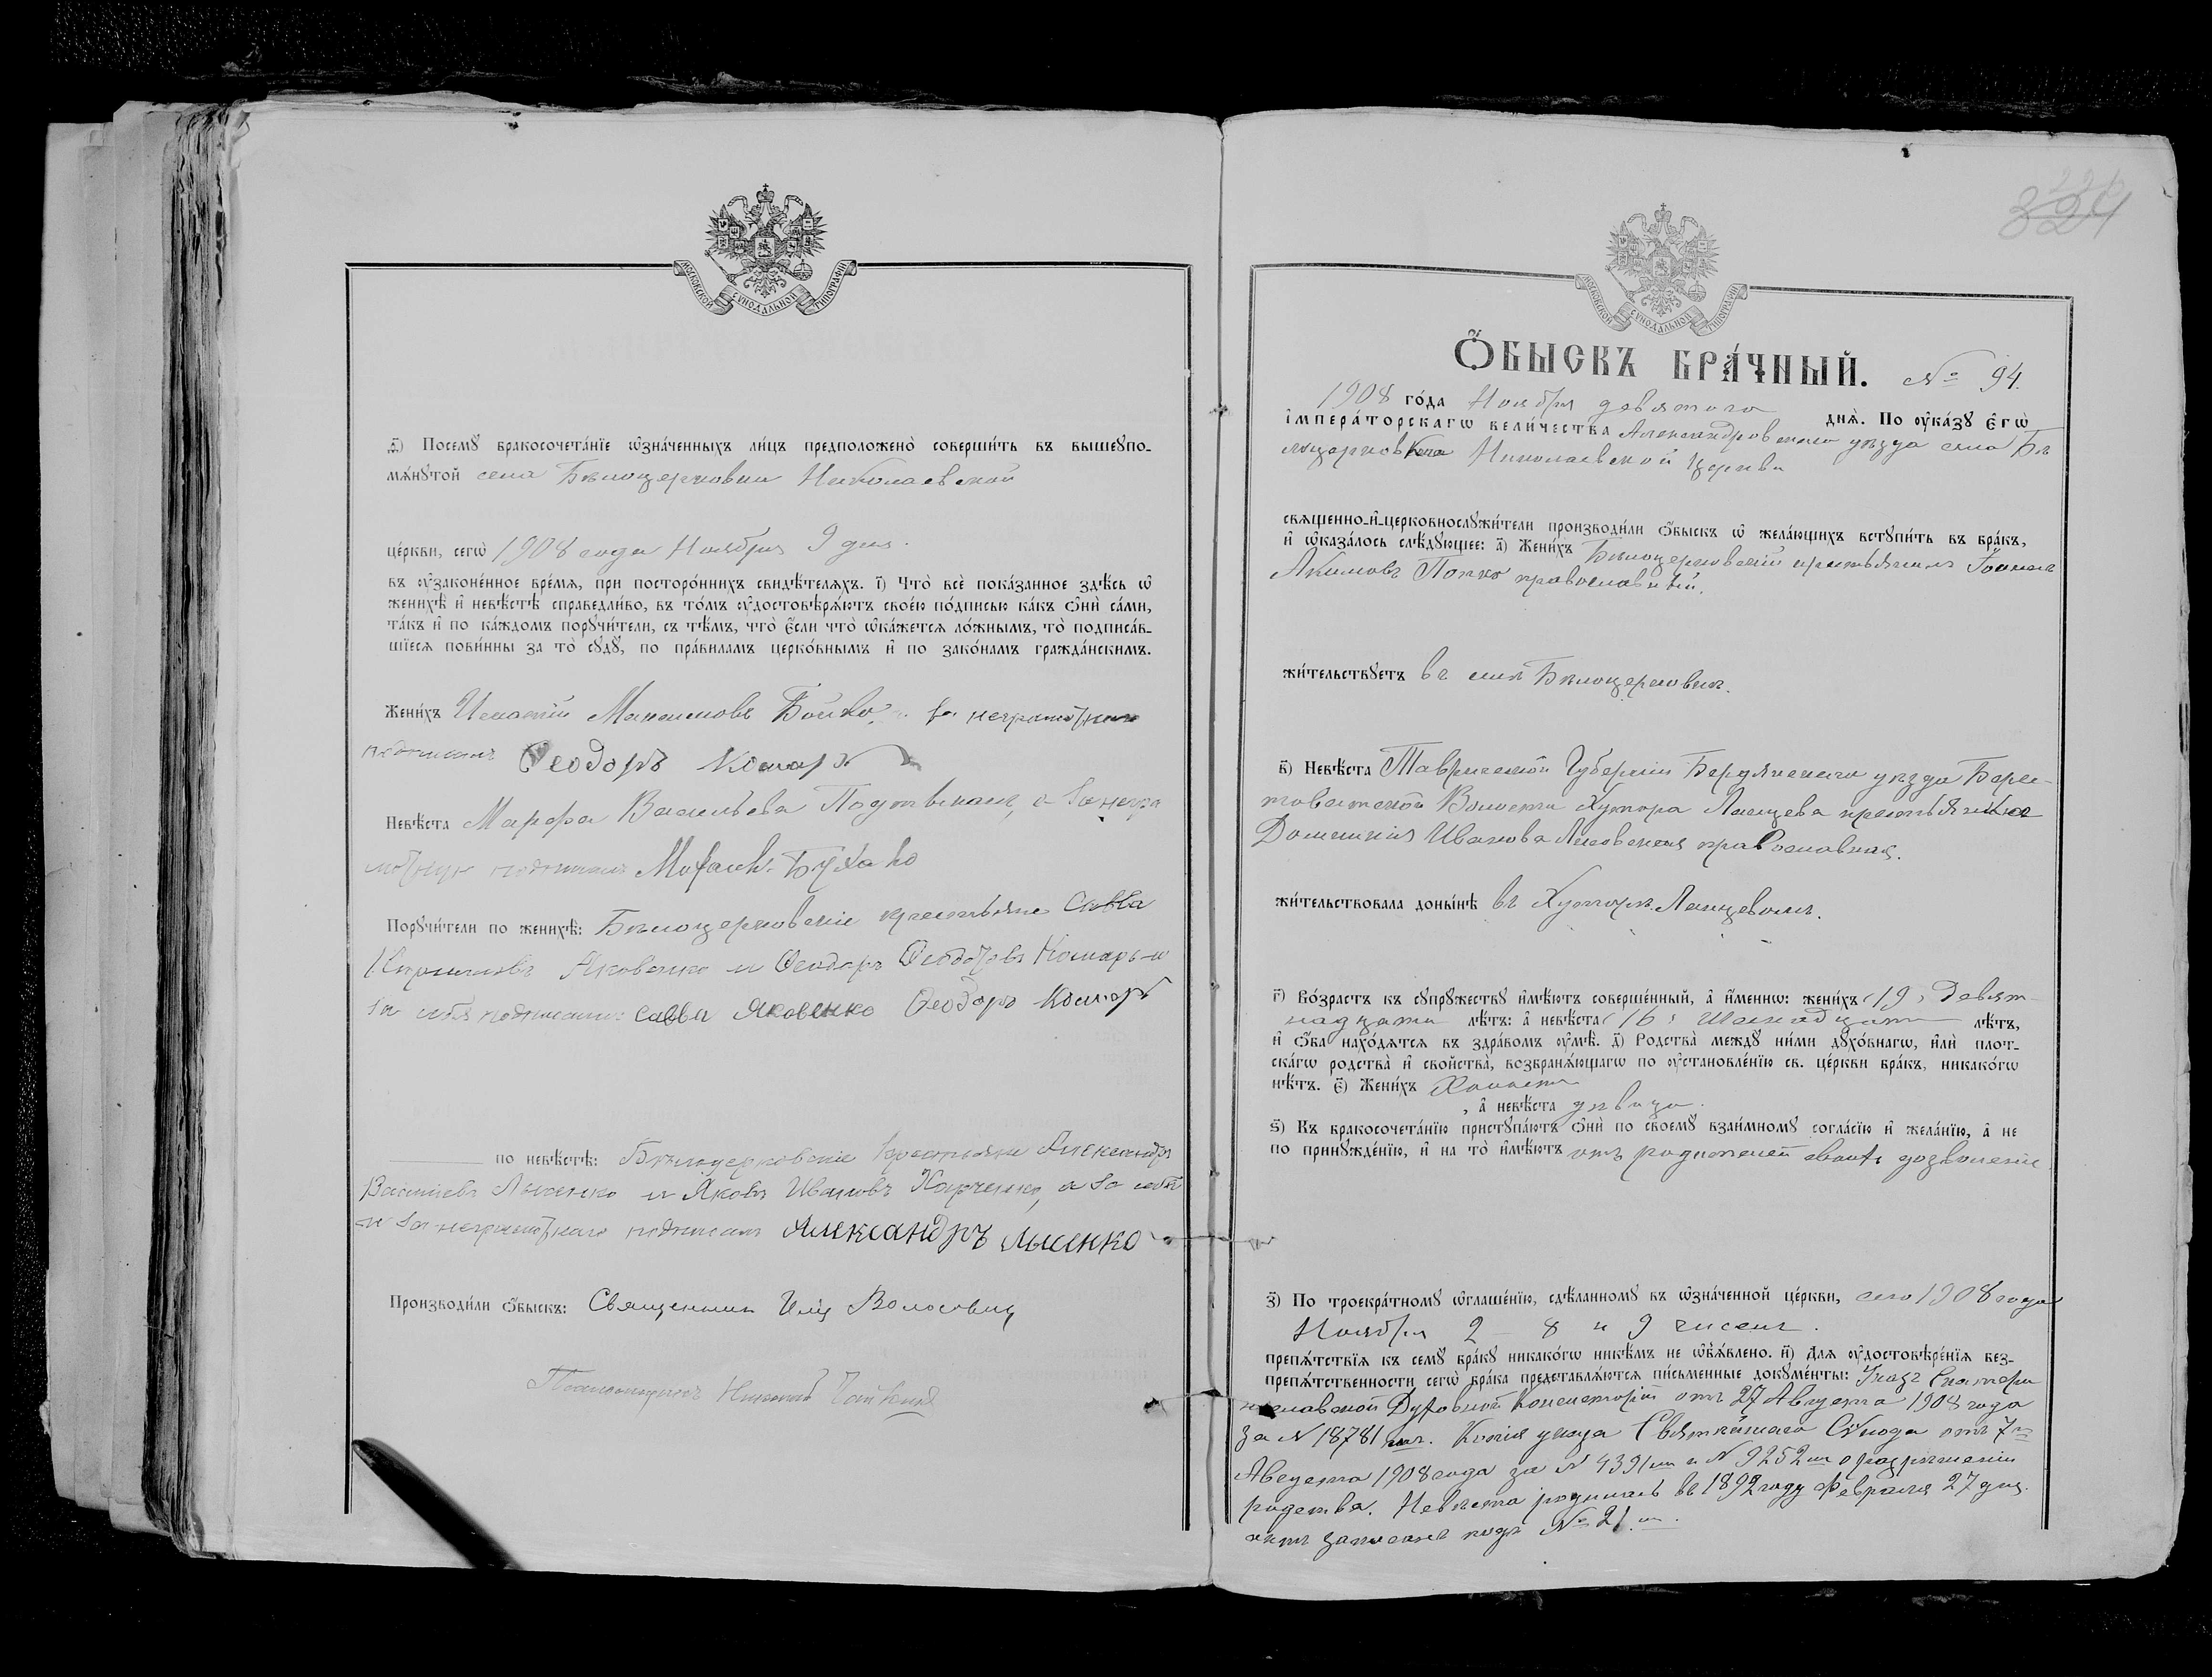 МОСКОВСКОЙ СѴНОДАЛЬНОЙ ТИПОГРАФІИ
д҃) Посемꙋ бракосочета́нїе ѡ҆зна́ченныхъ ли́цъ предположено̀ соверши́ть въ вышеꙋпо-
мѧ́нꙋтой села Бѣлоцерковки Николаевской
це́ркви, сегѡ̀ 1908 года Ноября 9 дня.
въ ᲂу҆зако́ненное вре́мѧ, при посторо́ннихъ свидѣ́телѧхъ. і҃) Что̀ всѐ пока́занное здѣ́сь ѡ҆
женихѣ̀ и҆ невѣ́стѣ справедли́во, въ то́мъ ᲂу҆достовѣрѧ́ютъ свое́ю по́дписью ка́къ ѻ҆нѝ са́ми,
та́къ и҆ по ка́ждомъ порꙋчи́тели, съ тѣ́мъ, что̀ є҆́сли что̀ ѡ҆ка́жетсѧ ло́жнымъ, то̀ подписа́в-
шїесѧ пови́нны за то̀ сꙋдꙋ̀, по пра́виламъ церко́внымъ и҆ по зако́намъ гражда́нскимъ.
Жени́хъ Игнатій Максимовъ Бойко а за неграмотнаго
подписалъ Ѳеодоръ Комаръ
Невѣ́ста Марфа Васильева а за негра
мотную подписалъ
Порꙋчи́тели по женихѣ̀: Бѣлоцерковскіе крестьяне Савва
Яковенко и Ѳеодоръ Ѳеодоровъ Комарь а
за себя подписали: Савва Яковенко Ѳеодоръ Комаръ
по невѣ́стѣ: Бѣлоцерковскіе крестьяне Александръ
Васильевъ Лысенко и Яковъ Ивановъ Харченко, а за себя
и за неграмотнаго подписалъ Александръ Лысенко
Производи́ли ѻ҆́быскъ: Священникъ Илія Волосовичъ
Псаломщикъ Николай
МОСКОВСКОЙ СѴНОДАЛЬНОЙ ТИПОГРАФІИ
Ѻ҆́БЫСКЪ БРА́ЧНЫЙ. № 94.
1908 го́да Ноября девятаго днѧ̀. По ᲂу҆ка́зꙋ Є҆гѡ̀
і҆мпера́торскагѡ вели́чества Александровскаго уѣзда села Бѣ
лоцерковки Николаевской церкви
свѧщенно-и҆-церковнослꙋжи́тели производи́ли ѻ҆́быскъ ѡ҆ жела́ющихъ встꙋпи́ть въ бра́къ,
и҆ ѡ҆каза́лось слѣ́дꙋющее: а҃) Жени́хъ Бѣлоцерковскій крестьянинъ Іоаннъ
Акимовъ Попко православный.
жи́тельствꙋетъ въ селѣ Бѣлоцерковкѣ.
в҃) Невѣ́ста Таврической Губерніи Бердянскаго уѣзда Берес-
товатской Волости Хутора Ланцева крестьянка
Домникія Иванова православная.
жи́тельствовала доны́нѣ въ Хуторѣ Ланцевомъ.
г҃) Во́зрастъ къ сꙋпрꙋ́жествꙋ и҆мѣ́ютъ соверше́нный, а҆ и҆́меннѡ: жени́хъ (19) Девят-
надцати лѣ́тъ: а҆ невѣ́ста (16) Шестнадцати лѣ́тъ,
и҆ ѻ҆́ба нахо́дѧтсѧ въ здра́вомъ ᲂу҆мѣ̀. д҃) Родства̀ междꙋ̀ ни́ми дꙋхо́внагѡ, и҆лѝ плот-
ска́гѡ родства̀ и҆ свойства̀, возбранѧ́ющагѡ по ᲂу҆становле́нїю св. це́ркви бра́къ, никако́гѡ
нѣ́тъ. є҃) Жени́хъ Холостъ
, а҆ невѣ́ста дѣвица.
ѕ҃) Къ бракосочета́нїю пристꙋпа́ютъ ѻ҆нѝ по своемꙋ̀ взаи́мномꙋ согла́сїю и҆ жела́нїю, а҆ не
по принꙋжде́нїю, и҆ на то̀ и҆мѣ́ютъ отъ родителей своихъ дозволеніе
з҃) По троекра́тномꙋ ѡ҆глаше́нїю, сдѣ́ланномꙋ въ ѡ҆зна́ченной це́ркви, сего 1908 года
Ноября 2 – 8 и 9 чиселъ.
препѧ́тствїѧ къ семꙋ̀ бра́кꙋ никако́гѡ никѣ́мъ не ѡ҆б̾ѧ́влено. и҃) Длѧ ᲂу҆достовѣре́нїѧ без-
препѧ́тственности сегѡ̀ бра́ка представлѧ́ютсѧ пи́сьменные докꙋме́нты: Указъ Екатери
нославской Духовной Консисторіи отъ 27 Августа 1908 года
за N 18781 мъ. Копія указа Святѣйшаго Сѵнода отъ 7го
Августа 1908 года за N 4391 мъ и N 9252 мъ о разрѣшеніи
родства. Невѣста родилась въ 1892 году Февраля 27 дня.
актъ записанъ подъ № 21 мъ.